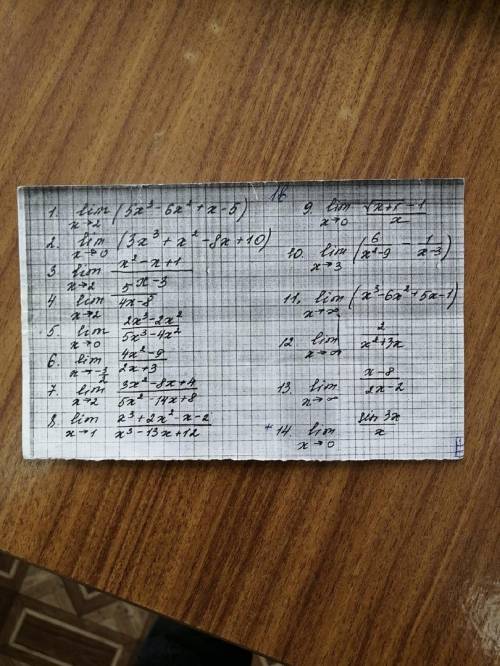 1в
1. lim x→2 (5x³-6x²+x-5)
2. lim x→0 (3x³+x²-8x+10)
3. lim x→2 (x²-x+1)/(x-3)
4. lim x→2 5/(4x-8)
5. lim x→0 (2x³-2x²)/(5x³-4x²)
6. lim x→-3/2 (4x²-9)/(2x+3)
7. lim x→2 (3x²-8x+4)/(5x²-14x+8)
8. lim x→1 (x³+2x²-x-2)/(x³-13x+12)
9. lim x→0 (√(x+1)-1)/x
10. lim x→3 (6/(x²-9) - 1/(x-3))
11. lim x→∞ (x³-6x²+5x-1)
12. lim x→∞ 2/(x²+3x)
13. lim x→∞ (x-8)/(2x-2)
+14. lim x→0 sin3x/x